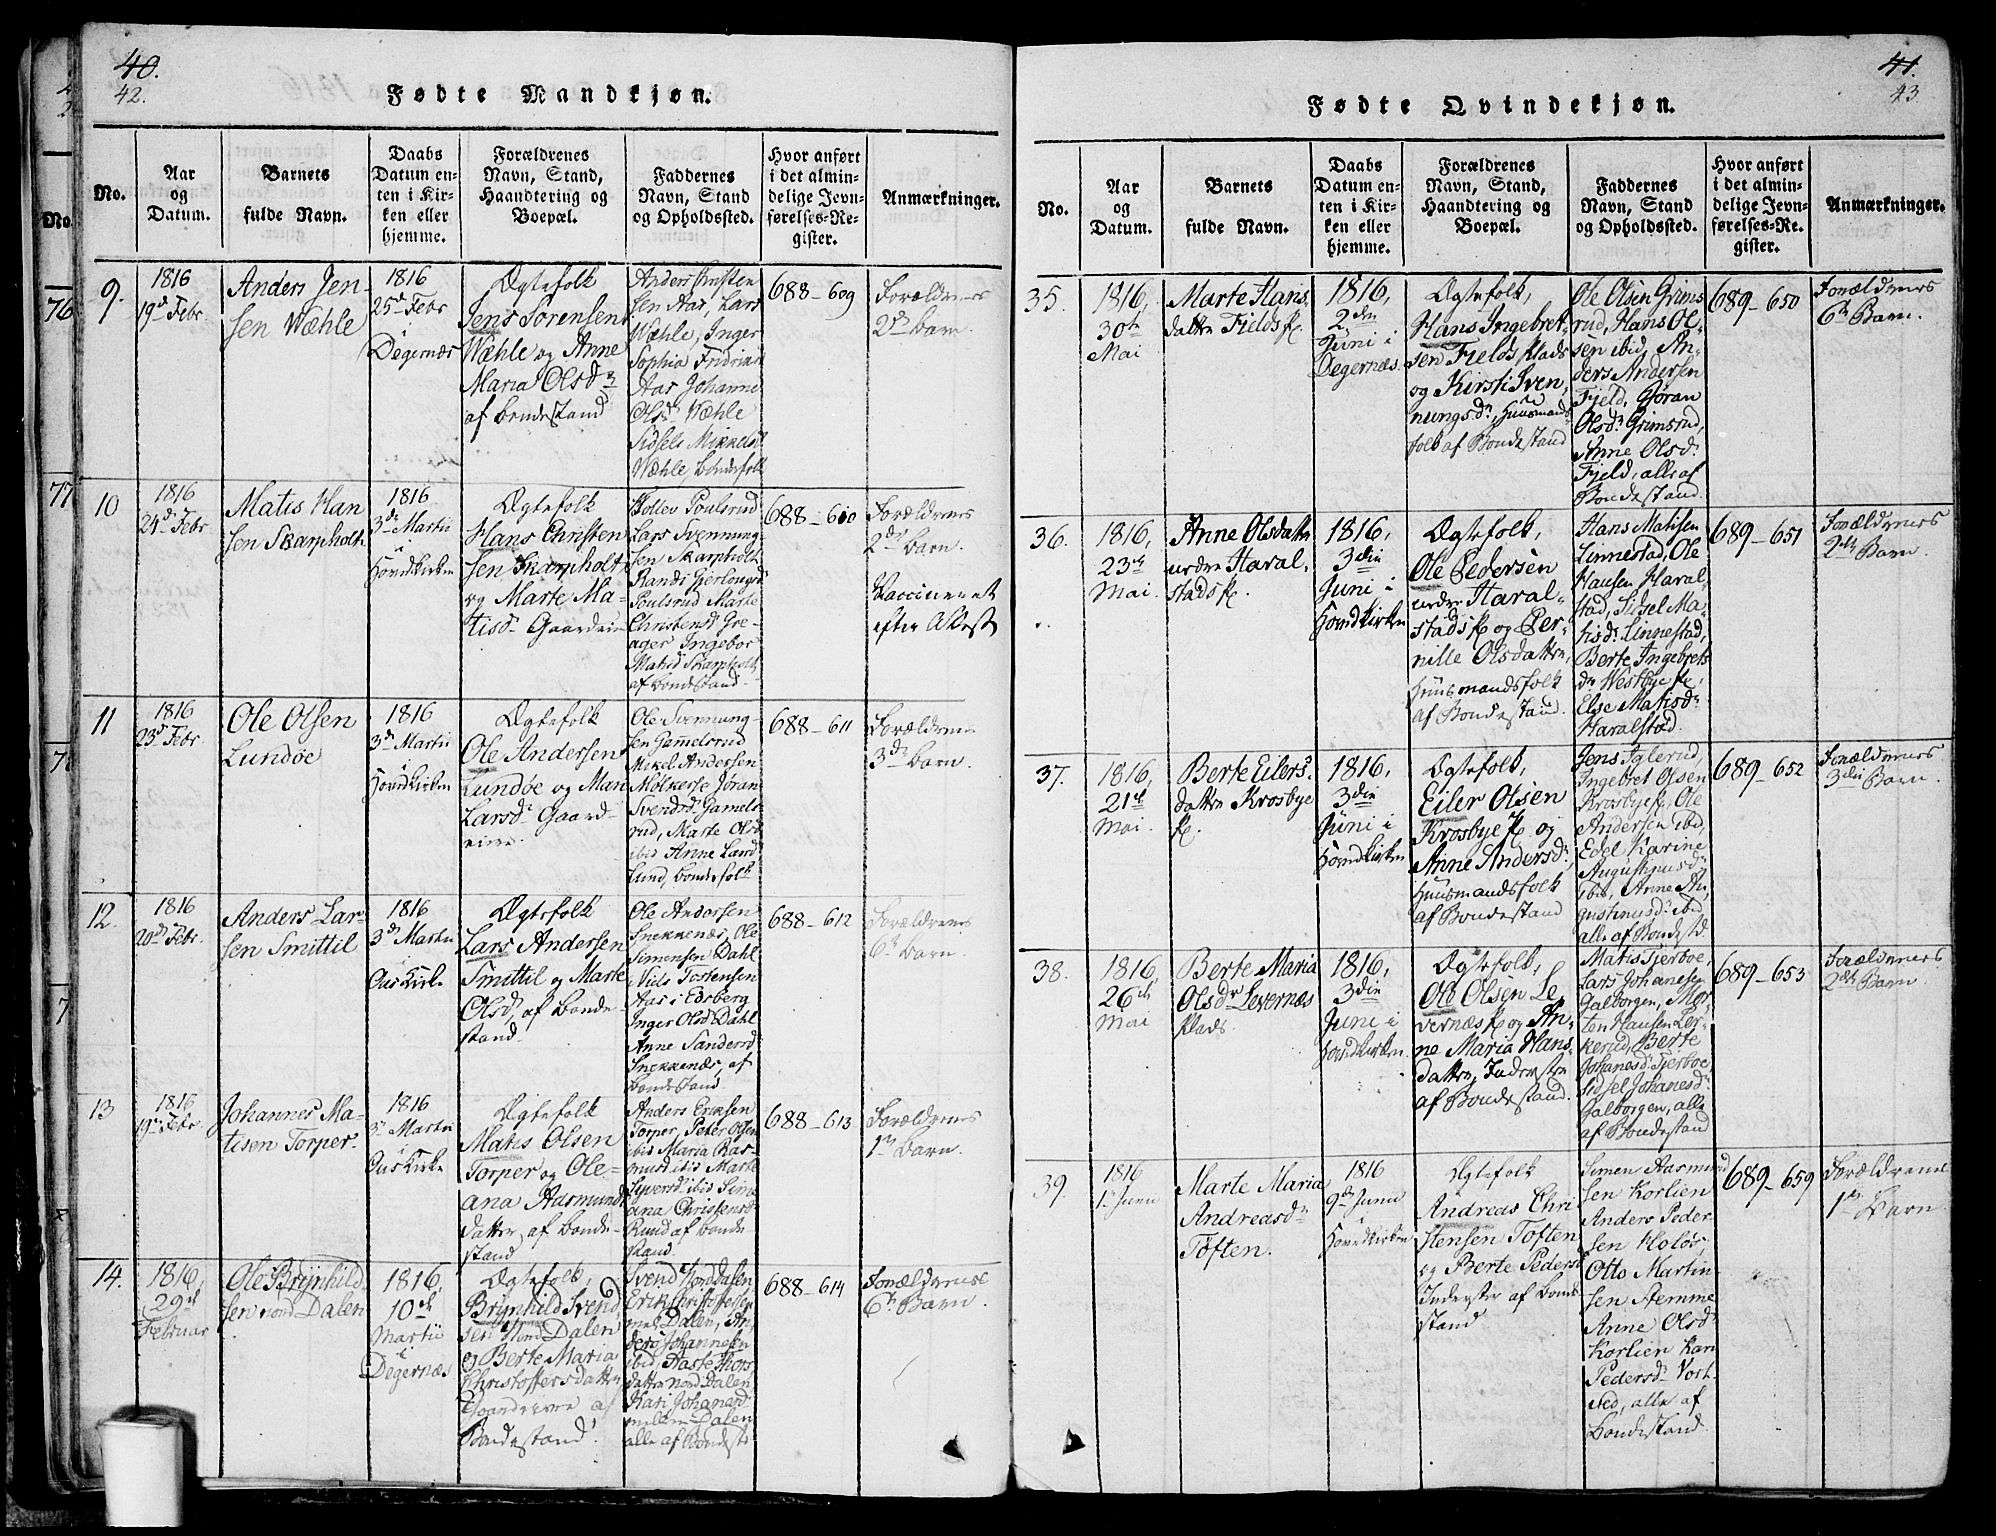 40.
42.
Fødte Mandkjøn.
No.
Aar
og
Datum.
Barnets
fulde Navn.
Daabs
Datum en-
ten i Kir-
ken eller
hjemme.
Forældrenes
Navn, Stand,
Haandtering og
Boepæl.
Faddernes
Navn, Stand
og Opholdssted.
Hvor anført
i det almin-
delige Jevn-
førelses-Re-
gister.
Anmærkninger.
9.
1816
19d Febr
Anders Jen-
sen Wæhle
1816
25d Febr
i
Degernæs
Ægtefolk
Jens Sørensen
Wæhle og Anne
Maria Olsdr
af bondestand
Anders Christen
sen Aas, Lars
Wæhle, Inger
Sophia Fridrich
Aas Johanne
Olsd Wæhle
Sidsele Mikkelsd
Wæhle, bondefolk
688-609
Forældrenes
2d barn.
10
1816
24d Febr
Matis Han
sen Skarpholt
1816
3d Martii
i
Hovedkirken
Ægtefolk
Hans Christen
sen Skarpholt
og Marte Ma-
tisd Gaardeiere
Tollev Poulsrud
Lars Svennung
sen Skarpholt
Randi Gerlougsd
Poulsrud Marte
Christensd Gre-
ager Ingebor
Matisd Skarpholt
af bondestand.
688-610
Forældrenes
2d barn.
Vaccineret
efter Attest
11
1816
23d Febr.
Ole Olsen
Lundøe
1816
3d Martii
i
Hovedkirken
Ægtefolk
Ole Andersen
Lundøe og Mari
Larsd. Gaard-
eiere.
Ole Svennung-
sen Gammelsrud
Mikel Andersen
Mølkerse Jøran
Svendsd Gamels-
rud, Marte Olsd
ibid Anne Larsd
Lund, bondefolk
688-611
Forældrenes
3d barn.
12.
1816
20d Febr.
Anders Lar-
sen Smittil
1816
3d Martii
i
Øus Kirke
Ægtefolk
Lars Andersen
Smittil og Marte
Olsd, af bonde-
stand
Ole Andersen
Snekkenæs, Ole
Simensen Dahl
Niels Tostensen
Aas i Edsberg
Inger Olsd Dahl
Anne Sandersd
Snekkenæs, af
bondestand
688-612
Forældrenes
6t barn.
13
1816
19d Febr
Johannes Ma-
tisen Torper.
1816
3d Martii
i
Øus Kirke
Ægtefolk
Matis Olsen
Torper og Ole-
ana Aasmunds
datter, af bonde-
stand
Anders Eriksen
Torper, Peter Olsen
ibid Maria Ras-
musd ibid Marte
Syversd ibid Sime
ana Christensd
Rund af bonde
stand.
688-613
Forældrenes
1t barn.
14.
1816,
29de
Februar
Ole Brynhild
sen nord Dalen
1816,
10de
Martii
i
Degernæs
Ægtefolk,
Brynhild Svend
sen Nord Dalen
og Berte Maria
Christoffersdatter
Gaardeiere af
Bondestand.
Svend Norddalen
Erik Christoffersen
mel. Dalen, An
ders Johannesen
ibid, Aaste Thors
datter nord Dalen
Kari Johansd
mellem Dalen
alle af Bondest.
688-614
Forældrenes
6te Barn.
41.
43
Fødte Qvindekjøn.
No.
Aar
og
Datum.
Barnets
fulde Navn.
Daabs
Datum en-
ten i Kir-
ken eller
hjemme.
Forældrenes
Navn, Stand,
Haandtering og
Boepæl.
Faddernes
Navn, Stand
og Opholdssted.
Hvor anført
i det almin-
delige Jevn-
førelses-Re-
gister.
Anmærkninger.
35.
1816,
30te
Mai
Marte Hans
datter Fields pl.
1816,
2den
Juni i
Degernæs.
Ægtefolk,
Hans Ingebret-
sen Fields Plads
og Kirsti Sven-
nungsdr, Huusmands
folk af Bondestand
Ole Olsen Grims
rud, Hans Ol-
sen ibid, An-
ders Andersen
Fjeld, Gøran
Olsdr Grimsrud,
Anne Olsdr
Fjeld, alle af
Bondestand.
689-650
Forældrenes
6te Barn.
36.
1816,
23de
Mai.
Anne Olsdatter
nedre Haral-
stads pl.
1816,
3die
Juni i
Hovedkirken
Ægtefolk,
Ole Pedersen
nedre Haral-
stads pl og Per-
nille Olsdatter,
Huusmandsfolk
af Bondestand.
Hans Matisen
Linnestad, Ole
Hansen Haral-
stad, Sidsel Ma-
tisdr Linnestad,
Berte Ingebrets
dr Westbye pl,
Else Matisdr
Haralstad.
689-651
Forældrenes
2det Barn.
37.
1816,
21de
Mai.
Berte Eilers
datter Krosbye
pl.
1816,
3die
Juni i
Hovedkirken
Ægtefolk,
Eiler Olsen
Krosbye pl og
Anne Andersdr
Huusmandsfolk
af Bondestand
Jens Iglerud,
Ingebret Olsen
Krosbye pl, Ole
Andersen ibid,
Edel Karine
Augustinusdr
ibid, Anne Au,
gustinusdr ibid
alle af Bondestd.
689-652
Forældrenes
3die Barn.
38.
1816,
26de
Mai
Berte Maria
Olsdr Levernæs
plads.
1816,
3die
Juni i
Hovedkirken.
Ægtefolk,
Ole Olsen Le
vernæs pl og An-
ne Maria Hans-
datter, Inderster
af Bondestand.
Matis Tjerboe,
Lars Johanesen
Galborgen, Mor-
ten Hansen Ler-
kerud, Berte
Johanesdr Tjerboe,
Sidsel Johanesdr
Galborgen, alle
af Bondestand
689-653
Forældrenes
2det Barn.
39.
1816
1t Junii
Marte Maria
Andreasdr
Toften.
1816
9de Junii
i
Hovedkirken
Ægtefolk
Andreas Chri
stensen Toften
og Berte Pedersd
Inderster af bonde
stand
Simen Aasmund
sen Korlien
Anders Peder-
sen Holøs,
Otto Martin-
sen Aemme
Anne Olsdr
Korlien Kari
Pedersd Vort-
ved, alle af
bondestand
689-659
Forældrenes
1te Barn.